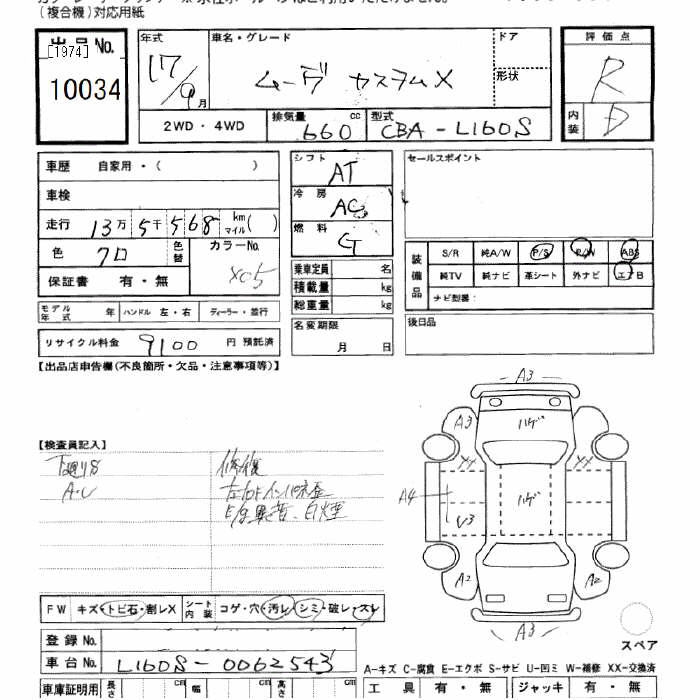 (複合機)対応用紙
出品No.
[1974]
10034
年式
17/9月
車名・グレード
ムーヴ カスタムX
ドア
形状
評価点
R
内装
D
2WD・4WD
排気量
660
cc
型式
CBA-L160S
車歴 自家用・( )
車検
走行 13万5千568 km マイル( )
色 クロ
色替
カラーNo.
X05
保証書 有・無
シフト
AT
冷房
AC
燃料
G
セールスポイント
装備品
S/R 純A/W P/S P/W ABS
純TV 純ナビ 革シート 外ナビ エアB
ナビ型番:
乗車定員 名
積載量 kg
総重量 kg
モデル年式 年 ハンドル 左・右 ディーラー・並行
名変期限
月 日
後日品
リサイクル料金 9100 円 預託済
【出品店申告欄(不良箇所・欠品・注意事項等)】
【検査員記入】
下廻りS
A・U
修復
白煙
A3
A3
ハゲ
XX
XX
A4
ハゲ
U3
A2
A2
A3
FW キズ・トビ石・割レX
シート内装 コゲ・穴・汚レ・シミ・破レ・スレ
スペア
登録No.
車台No. L160S-0062543
A-キズ C-腐食 E-エクボ S-サビ U-凹ミ W-補修 XX-交換済
車庫証明用 長さ cm 幅 cm 高さ cm
工具 有・無 ジャッキ 有・無